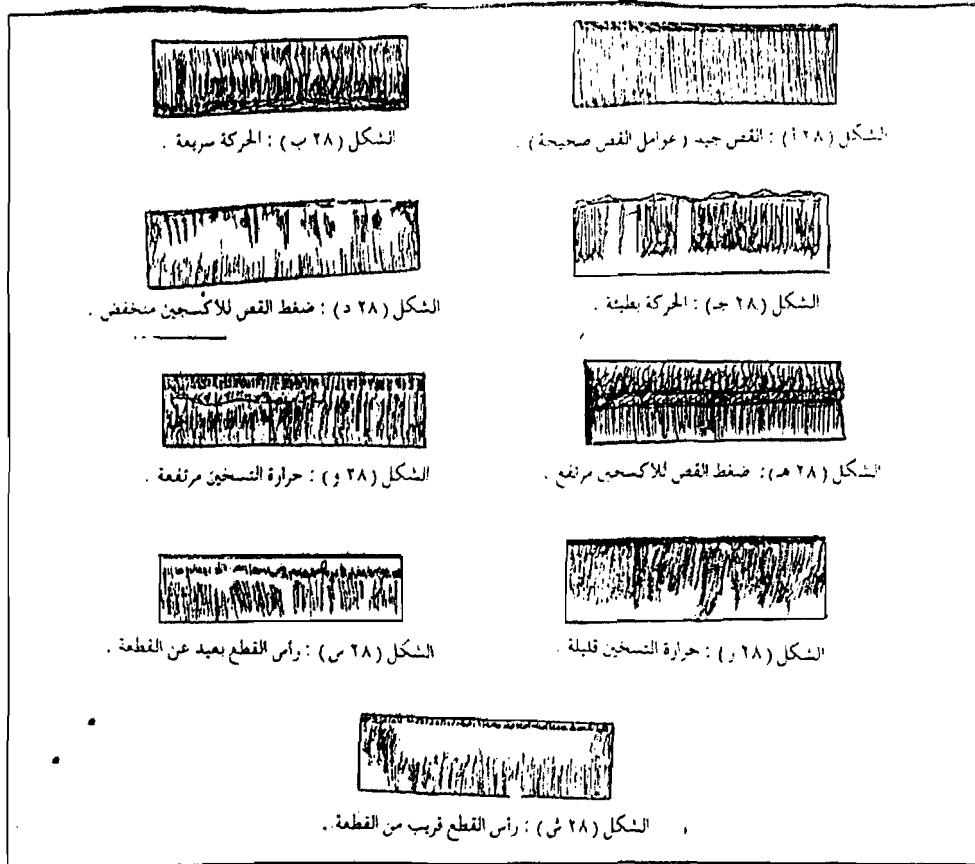 الشكل ( ٢٨ أ ) : القص جيد ( عوامل القص صحيحة ) .
الشكل ( ٢٨ ب ) : الحركة سريعة .
الشكل ( ٢٨ جـ ) : الحركة بطيئة .
الشكل ( ٢٨ د ) : ضغط القص للأكسجين منخفض .
الشكل ( ٢٨ هـ ) : ضغط القص للأكسجين مرتفع .
الشكل ( ٢٨ و ) : حرارة التسخين مرتفعة .
الشكل ( ٢٨ ر ) : حرارة التسخين قليلة .
الشكل ( ٢٨ س ) : رأس القطع بعيد عن القطعة .
الشكل ( ٢٨ ش ) : رأس القطع قريب من القطعة .